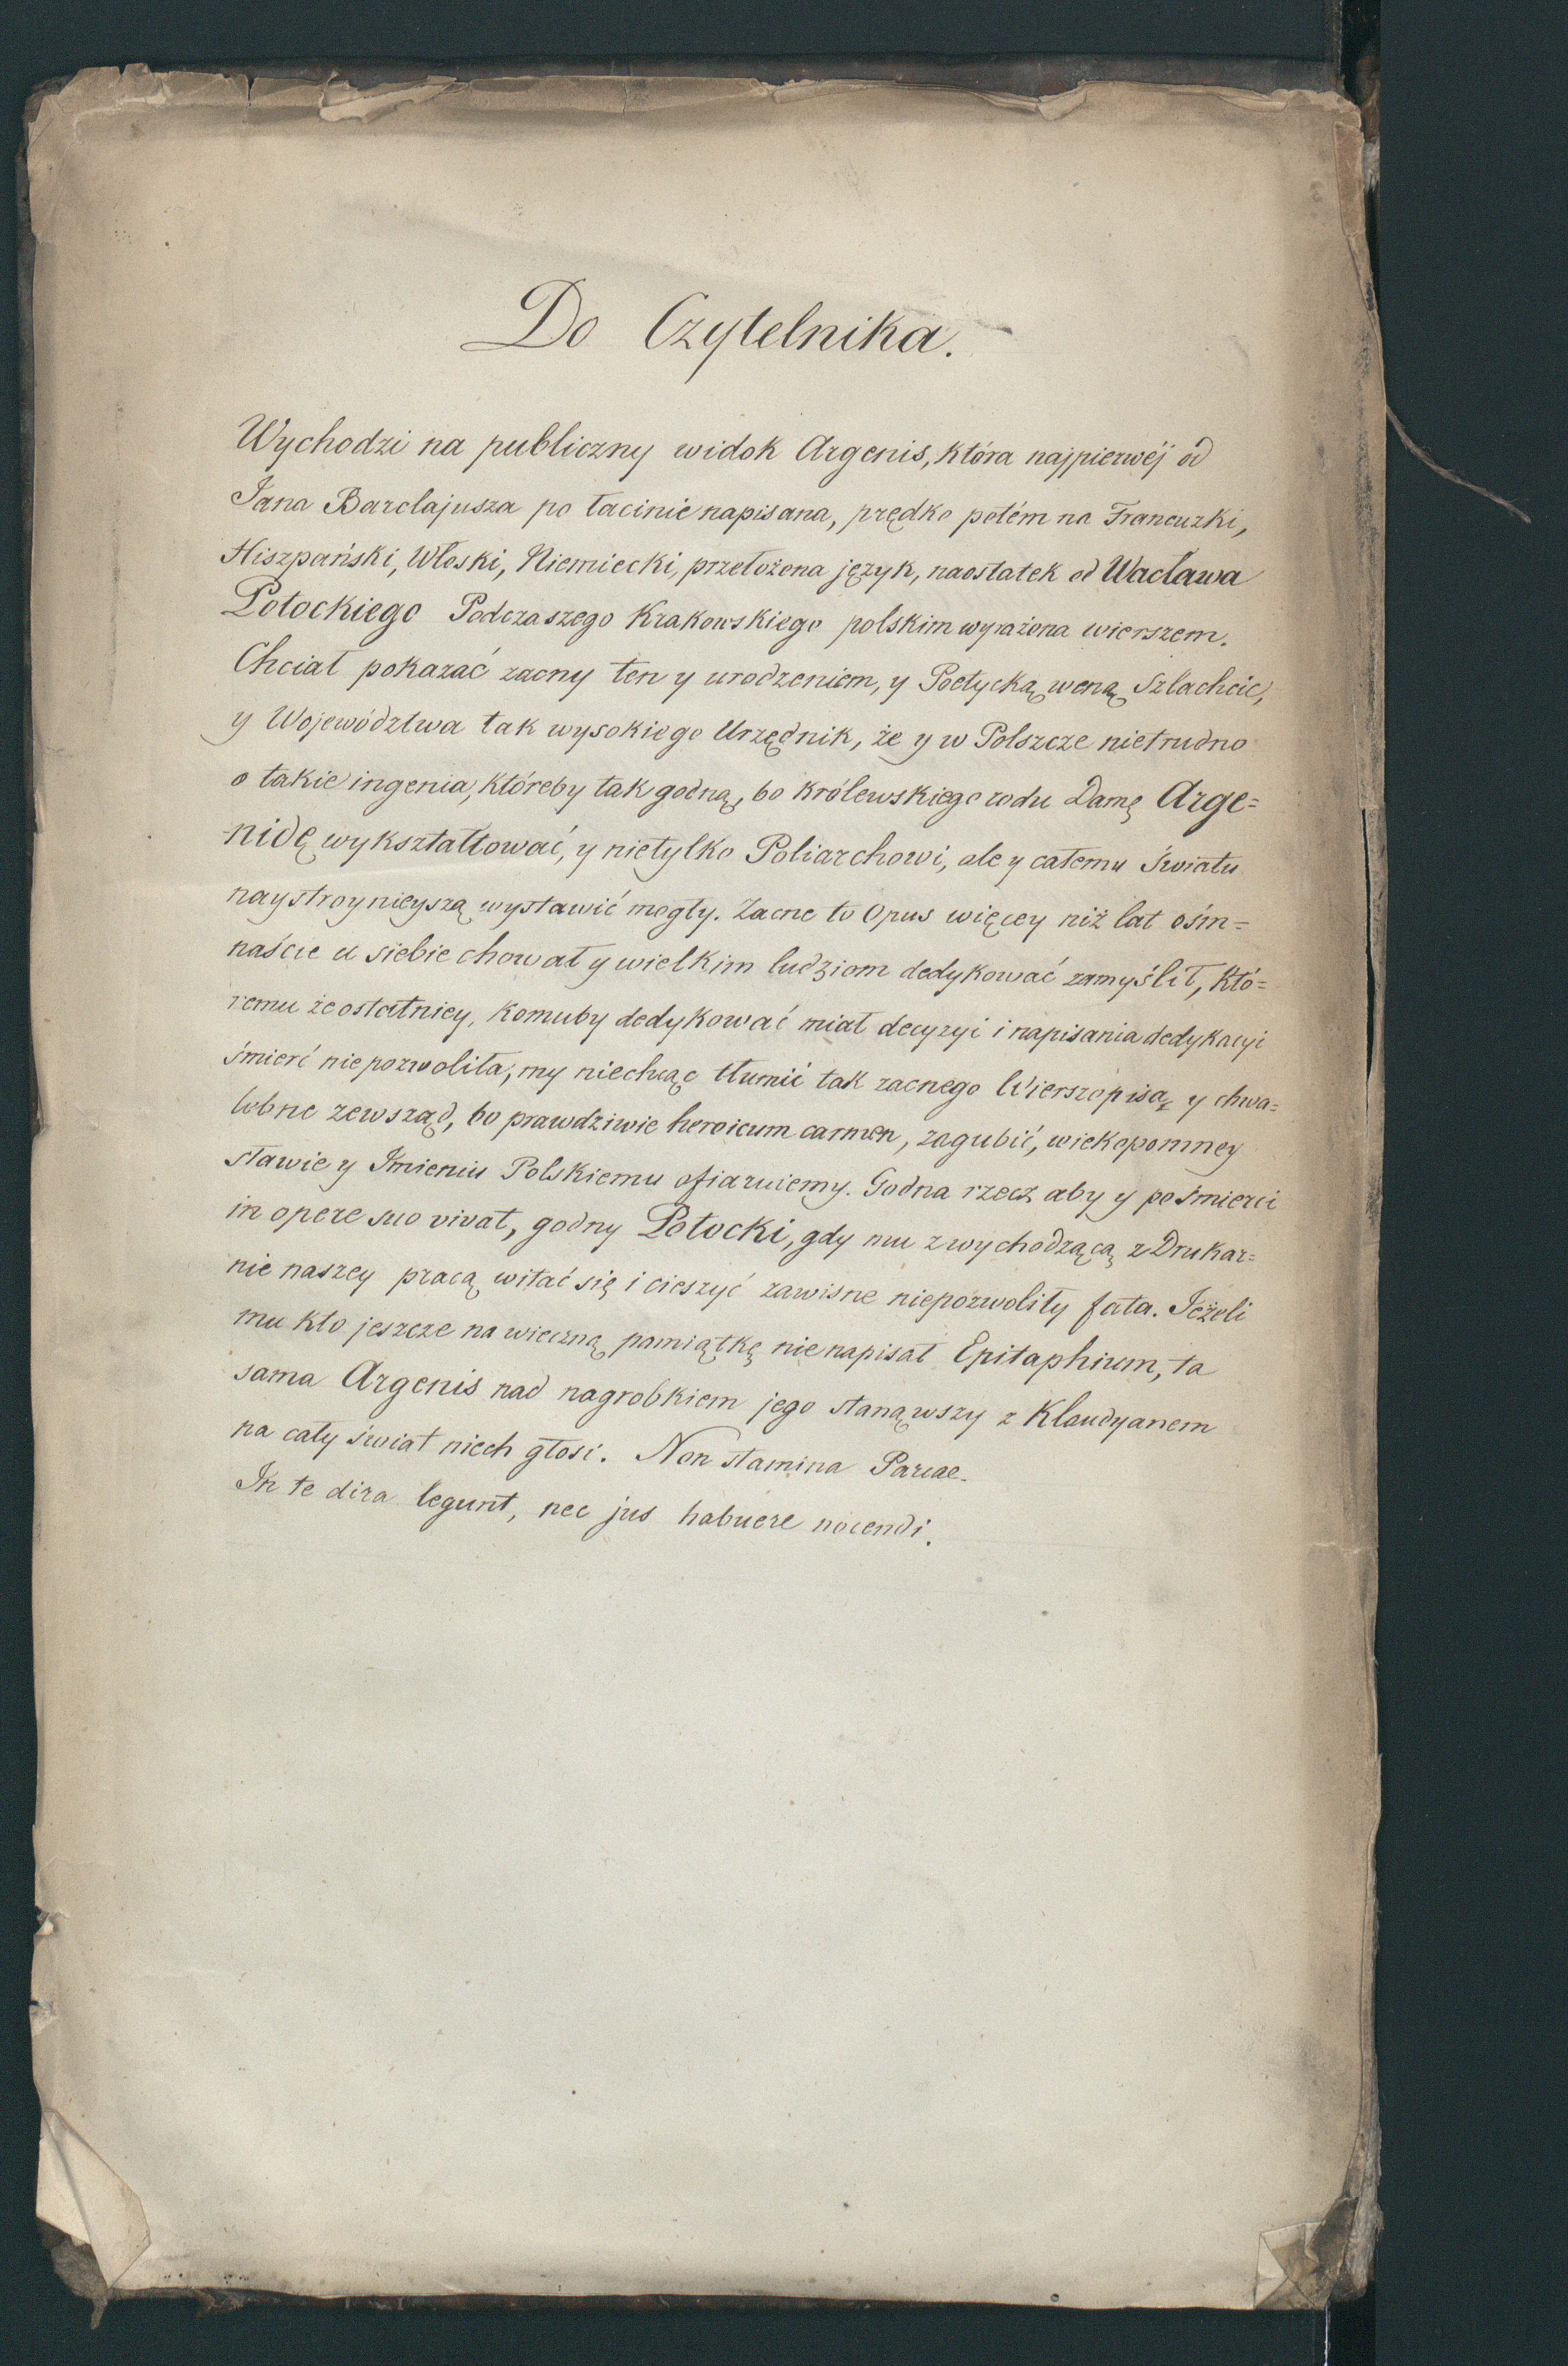 Do Czytelnika.
Wychodzi na publiczny widok Argenis, która najpierwéj od
Jana Barclajusza po łacinie napisana, prędko potém na Francuzki,
Hiszpański, Włoski, Niemiecki, przełożona język, naostatek od Wacława
Potockiego Podczaszego Krakowskiego polskim wyrażona wierszem.
Chciał pokazać zacny ten y urodzeniem, y Poetycką weną Szlachcic,
y Województwa tak wysokiego Urzędnik, że y w Polszcze nietrudno
o takie ingenia, któreby tak godną, bo królewskiego rodu Damę Arge=
nidę wykształtować, y nietylko Poliarchowi, ale y całemu światu
naystroynieyszą wystawić mogły. Zacne to Opus więcey niż lat ośm=
naście u siebie chował y wielkim ludziom dedykować zamyślił, któ=
remu że ostatniey, komuby dedykować miał decyzyi i napisania dedykacyi
śmierć niepozwoliła, my niechcąc tłumić tak zacnego Wierszopisa, y chwa=
lebne zewsząd, bo prawdziwie heroicum carmen, zagubić, wiekopomney
sławie y Imieniu Polskiemu ofiaruiemy. Godna rzecz aby y po śmierci
in opere suo vivat, godny Potocki, gdy mu z wychodzącą z Drukar=
nie naszey pracą witać się i cieszyć zawisne niepozwoliły fata. Jeżeli
mu kto jeszcze na wieczną pamiątkę nienapisał Epitaphium, ta
sama Argenis nad nagrobkiem jego stanąwszy z Klaudyanem
na cały świat niech głosi. Non stamina Parcae.
In te dira legunt, nec jus habuere nocendi.